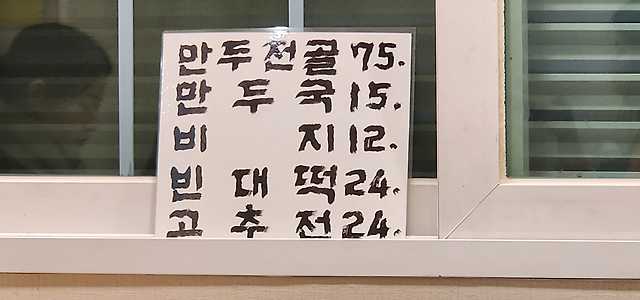 만두전골 75.
만두국 15.
비지 12.
빈대떡 24.
고추전 24.